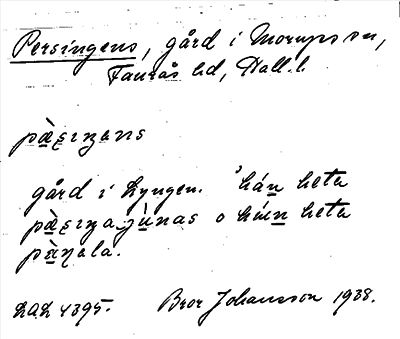 Persingens, gård i Morups sn,
Faurås hd, Hall. l.
pàsıŋans
gård i Lyngen. hán heta
pàsıŋa jùnas o hún heta
pàŋala.
LAL 4395. Bror Johansson 1938.